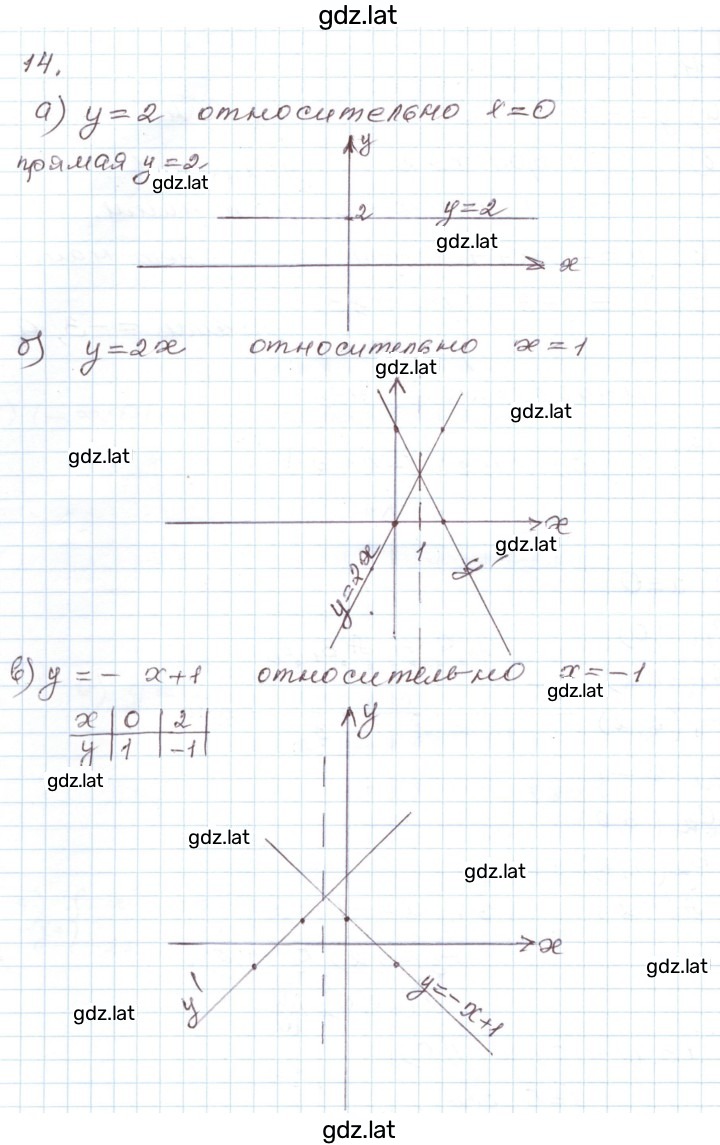 gdz.lat
14.
а) y = 2 относительно x = 0
прямая y = 2.
gdz.lat
y
2
y = 2
gdz.lat
x
б) y = 2x относительно x = 1
gdz.lat
gdz.lat
gdz.lat
x
gdz.lat
1
y = 2x
y'
в) y = - x + 1 относительно x = -1
gdz.lat
x | 0 | 2 |
y | 1 | -1 |
y
gdz.lat
gdz.lat
gdz.lat
x
gdz.lat
y'
y = -x + 1
gdz.lat
gdz.lat